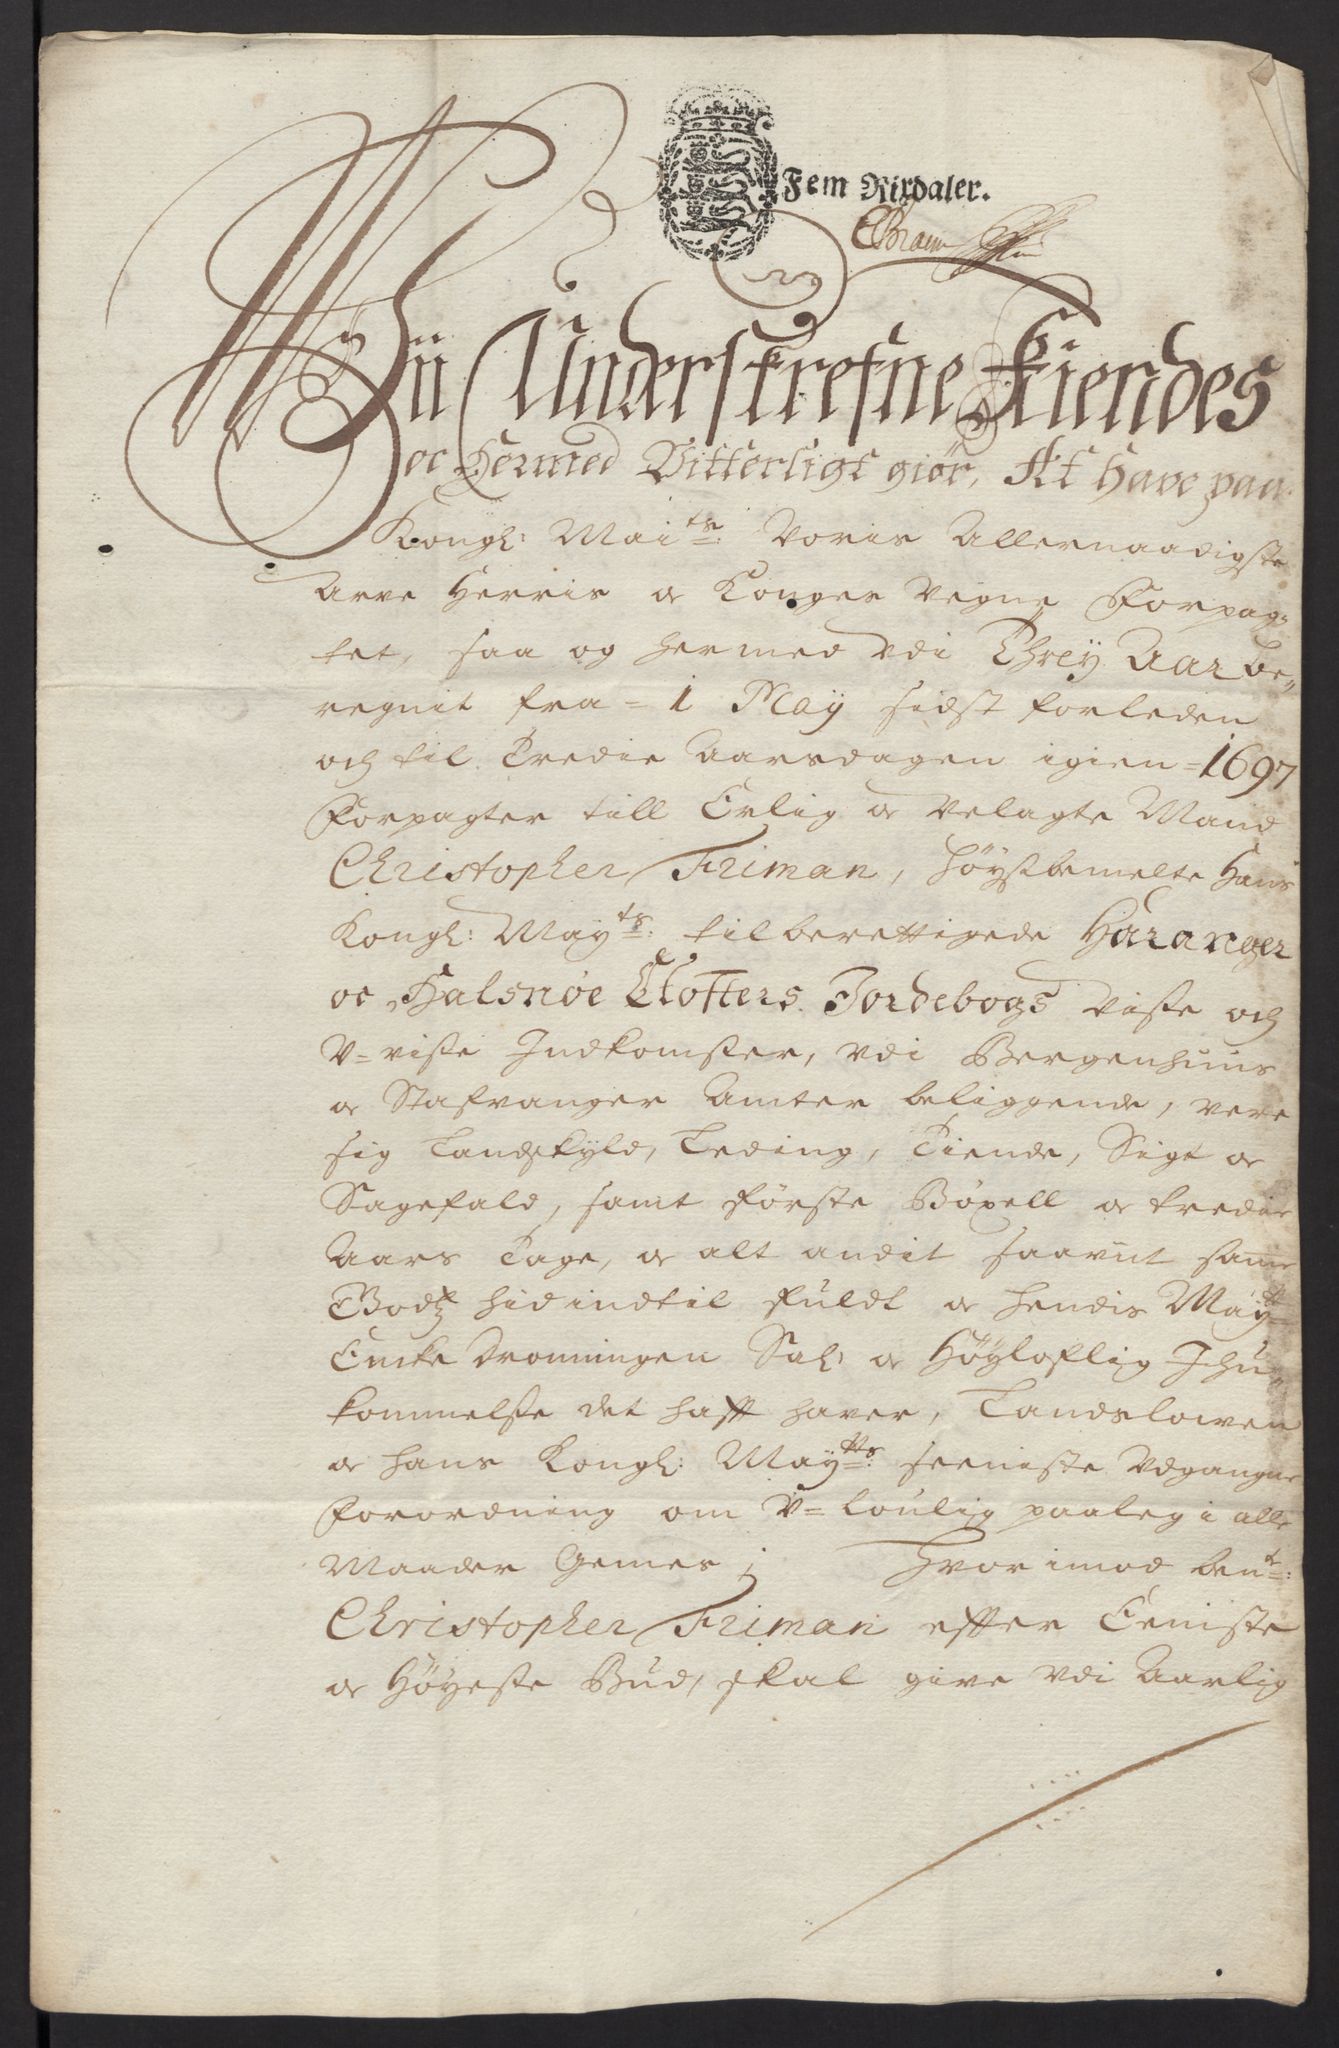 Fem Rixdaler.
Wii Underskrefne Kiendes
oc Hermed Vitterligt giør, At have paa
Kongl: Maits: Voris Allernaadigste
Arve Herris oc Konges Vegne Forpag-
tet, saa og hermed vdi Threÿ Aar be-
regnit fra = 1 Maÿ sidst forleden
och til Tredie Aarsdagen igien = 1697
Forpagter till Erlig oc Velagte Mand
Christopher Friman, høystbemelte Hans
Kongl: Mayts: tilberettigede Haranger
oc Halsnøe Closters Jordebogs visse och
V=visse Indkomster, vdi Bergenhuus
oc Stafvanger Amter beliggende, vere
sig Landskyld, Leding, Tiende, Sigt oc
Sagefald, samt første Bøxell oc tredie
Aars Tage, oc alt andit saavit samme
Godtz hid indtil fuldt oc Hendis Mayt
Encke Dronningen Sal: oc Høyloflig Ihu-
kommelse det hafft haver, Landslowen
oc Hans Kongl: Mayts: seeniste Vdgangne
Forordning om V=loulig paaleg i alle
Maader Gemes; Hvorimod bemte:
Christopher Friman effter Eeniste
oc Høyeste Bud, skal give vdi Aarlig